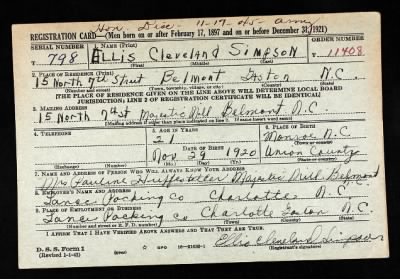 Hon. Disc. 11-17-45 - army
REGISTRATION CARD—(Men born on or after February 17, 1897 and on or before December 31, 1921)
SERIAL NUMBER 1. NAME (Print) ORDER NUMBER
T 798 Ellis Cleveland Simpson 11408
(First) (Middle) (Last)
2. PLACE OF RESIDENCE (Print)
15 North 7th Street Belmont Gaston N.C.
(Number and street) (Town, township, village, or city) (County) (State)
[THE PLACE OF RESIDENCE GIVEN ON THE LINE ABOVE WILL DETERMINE LOCAL BOARD
JURISDICTION; LINE 2 OF REGISTRATION CERTIFICATE WILL BE IDENTICAL]
3. MAILING ADDRESS
15 North 7th St Majestic Mill Belmont N.C
[Mailing address if other than place indicated on line 2. If same insert word same]
4. TELEPHONE 5. AGE IN YEARS 6. PLACE OF BIRTH
21 Monroe N.C.
DATE OF BIRTH (Town or county)
Nov. 29 1920 Union County
(Exchange) (Number) (Mo.) (Day) (Yr.) (State or country)
7. NAME AND ADDRESS OF PERSON WHO WILL ALWAYS KNOW YOUR ADDRESS
Mrs Pauline Huffstetler Majestic Mill Belmont
8. EMPLOYER'S NAME AND ADDRESS
Lance Packing Co Charlotte N.C
9. PLACE OF EMPLOYMENT OR BUSINESS
Lance Packing Co Charlotte N.C
(Number and street or R. F. D. number) (Town) (County) (State)
I AFFIRM THAT I HAVE VERIFIED ABOVE ANSWERS AND THAT THEY ARE TRUE.
D. S. S. Form 1
(Revised 1-1-42) (over) GPO 16—21630-1 Ellis Cleveland Simpson
(Registrant's signature)